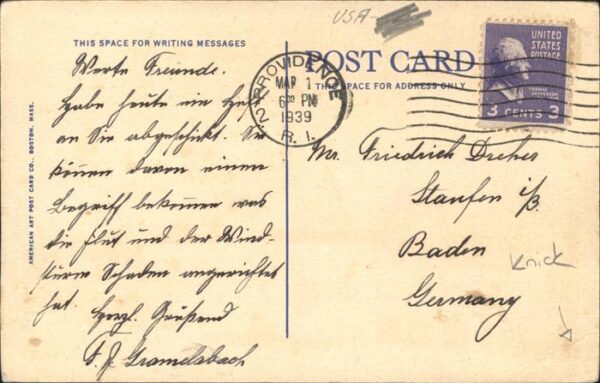 USA-
THIS SPACE FOR WRITING MESSAGES
Werte Freunde.
Habe heute ein Heft
an Sie abgeschickt. Sie
können davon einen
Begriff bekommen was
die Flut und der Wind-
sturm Schaden angerichtet
hat. Herzl. Grüßend
F. J. Gramelsbach
AMERICAN ART POST CARD CO., BOSTON, MASS.
POST CARD
THIS SPACE FOR ADDRESS ONLY
PROVIDENCE
MAR 1
6 PM
1939
R. I.
2
UNITED
STATES
POSTAGE
THOMAS
JEFFERSON
3 CENTS 3
Mr. Friedrich Dreher
Staufen i/B.
Baden
Germany
Knick